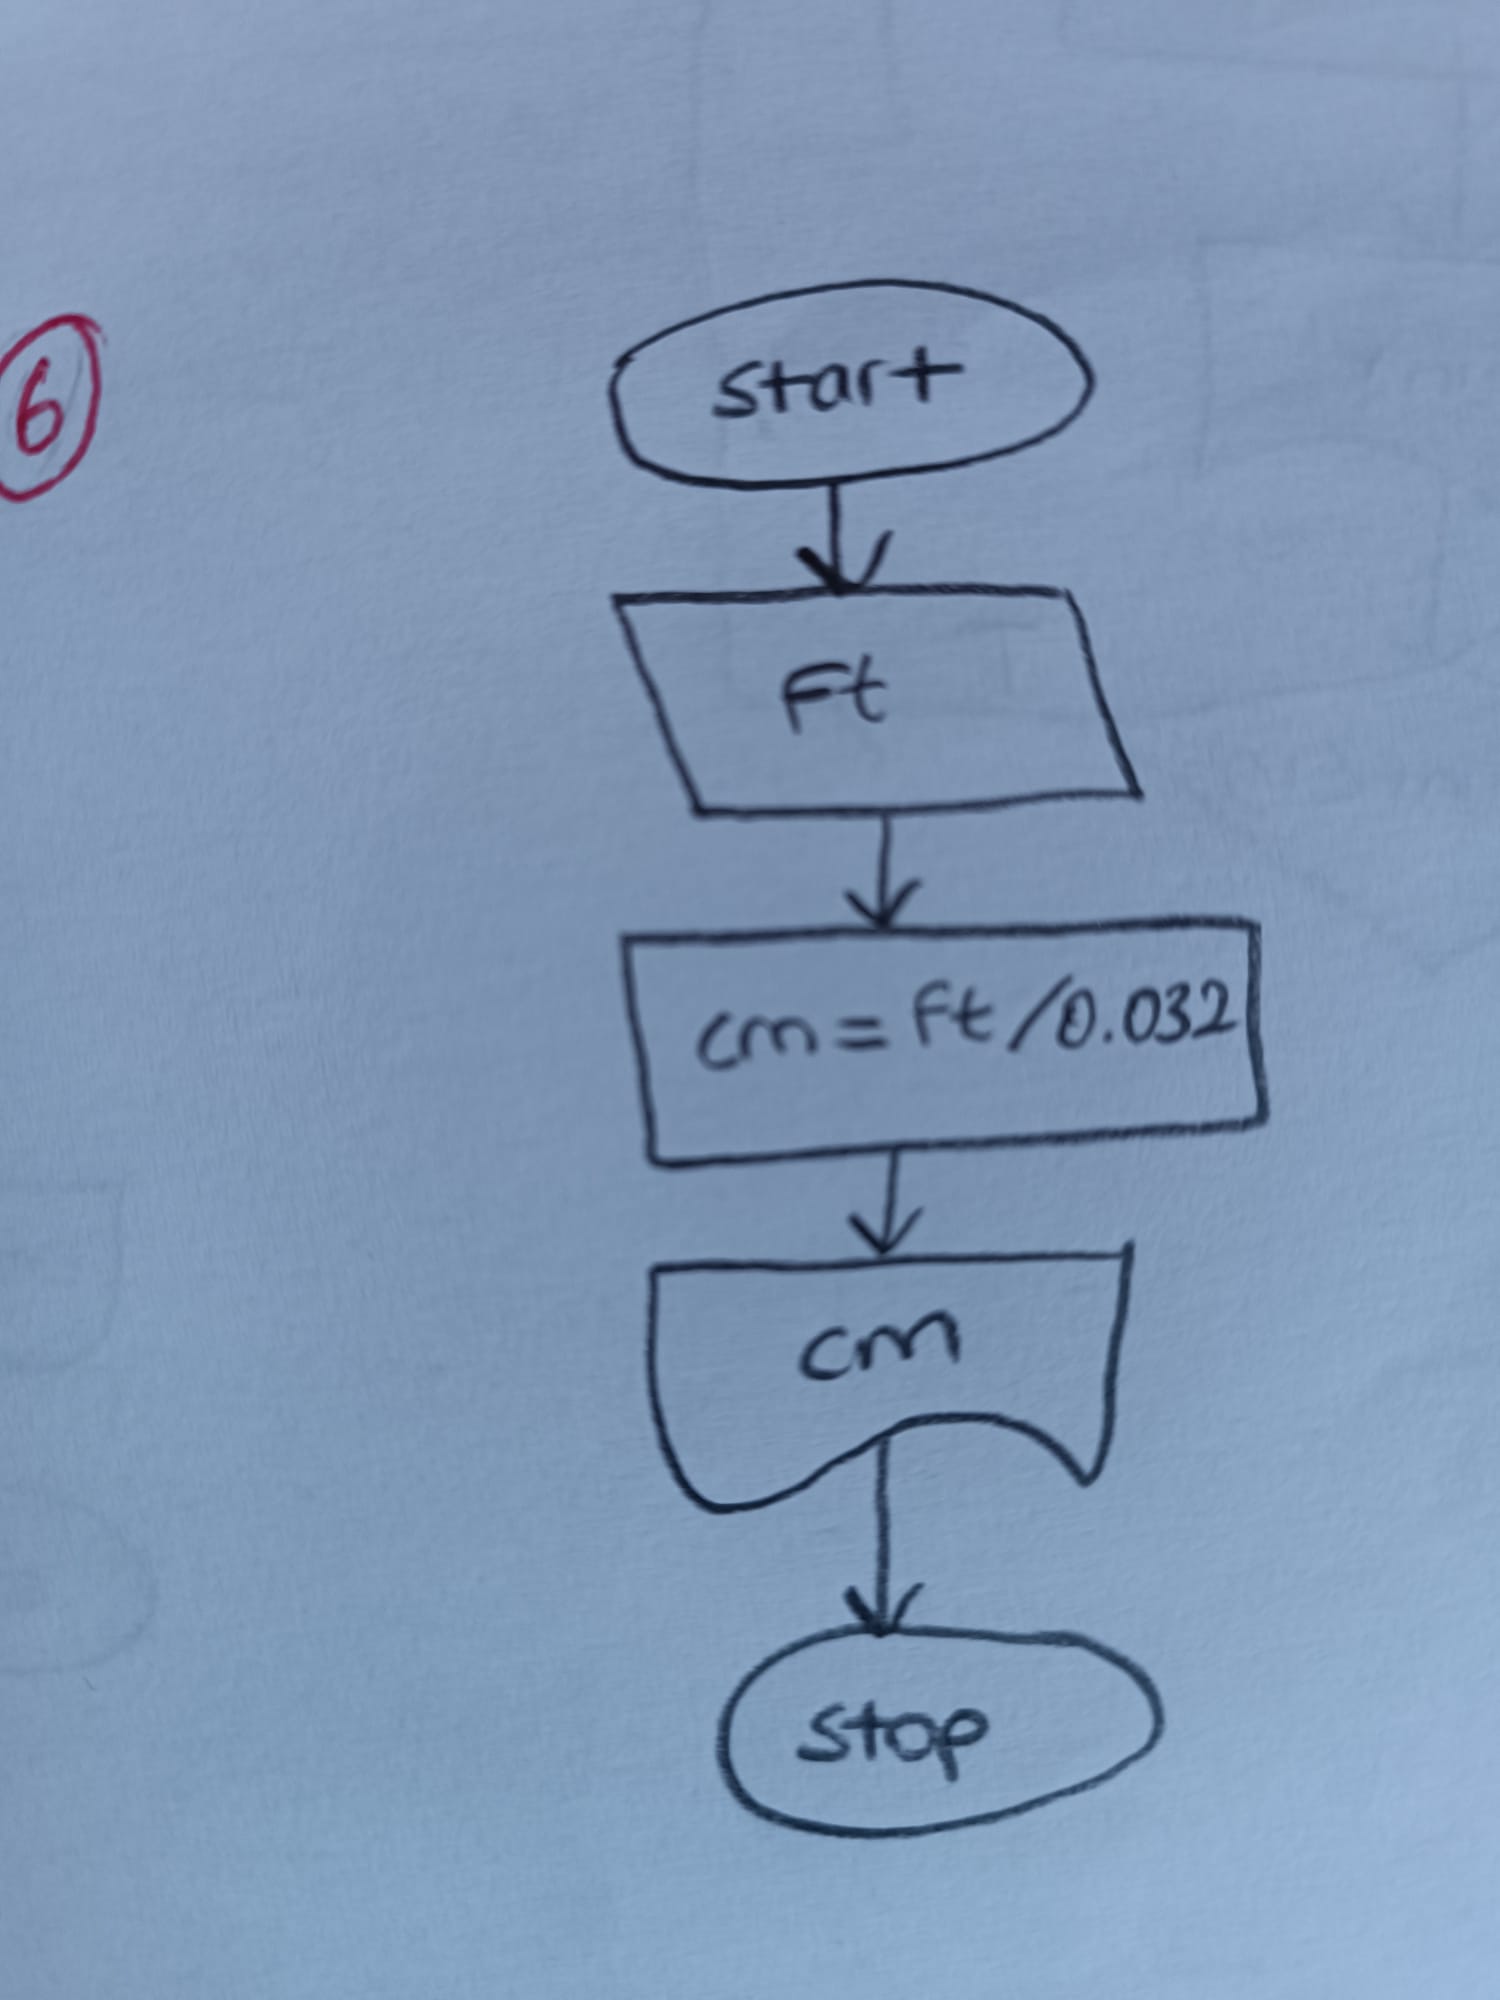 6
start
Ft
cm = Ft/0.032
cm
stop